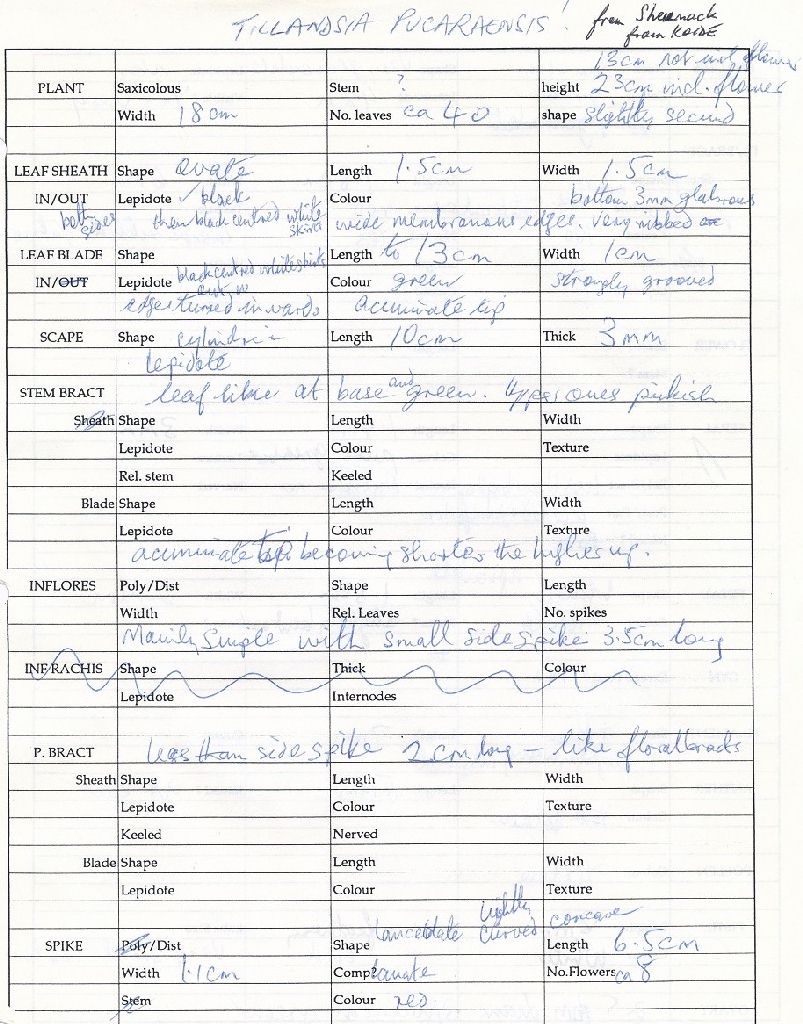 TILLANDSIA PUCARAENSIS! from Shernack
from KOIDE
13cm not incl. flower
PLANT Saxicolous Stem ? height 23cm incl. flower
Width 18cm No. leaves ca 40 shape slightly secund
LEAF SHEATH Shape Ovate Length 1.5cm Width 1.5cm
IN/OUT Lepidote ✓ black Colour bottom 3mm glabrous
both sides then black centred white skirts wide membranous edges. Very ribbed
LEAF BLADE Shape Length to 13cm Width 1cm
IN/OUT Lepidote black centred white skirts Colour green strongly grooved
edges turned inwards acuminate tip
SCAPE Shape cylindric Length 10cm Thick 3mm
lepidote
STEM BRACT leaf like at base and green. Upper ones pinkish
Sheath Shape Length Width
Lepidote Colour Texture
Rel. stem Keeled
Blade Shape Length Width
Lepidote Colour Texture
acuminate becoming shorter the higher up.
INFLORES Poly/Dist Shape Length
Width Rel. Leaves No. spikes
Mainly Simple with small side spike 3.5cm long
INF RACHIS Shape Thick Colour
Lepidote Internodes
P. BRACT less than side spike 2cm long – like floral bracts
Sheath Shape Length Width
Lepidote Colour Texture
Keeled Nerved
Blade Shape Length Width
Lepidote Colour Texture
lightly
SPIKE Poly/Dist Shape lanceolate curved concave Length 6.5cm
Width 1.1cm Comp? No.Flowers ca 8
Stem Colour red